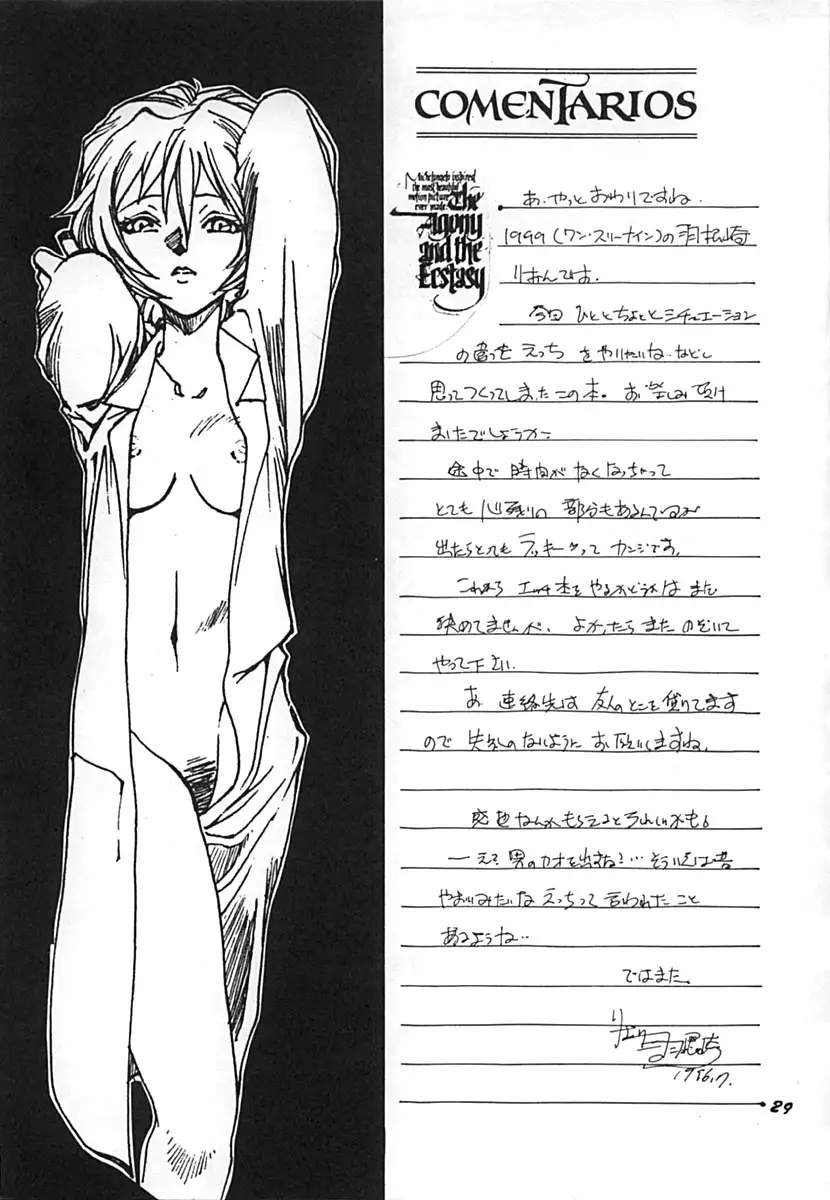 COMENTARIOS
Michelangelo inspired
the most beautiful
motion picture
ever made:
The
Agony
and the
Ecstasy
あ、やっとおわりですね.
1999(ワン・スリーナイン)の
りおんです.
今回 ひと ちょっとシチュエーション
の違った えっち をやりたいね…などと
思ってつくってしまったこの本。お楽しみ頂け
ましたでしょうか?
途中で 時間がなくなっちゃって
とても心残りの 部分もあるんでいるが
出たらとってもラッキーって カンジです。
これから エッチ本をやるかどうかは まだ
決めてませんが、よかったら また のぞいて
やって下さい.
あ 連絡先は 友人のとこを借りてます
ので 失礼のないように お願いしますね.
感想なんかもらえるとうれしいかも。
― え? 男のカオを出すな?…そういえば昔
やおいみたいなえっちって 言われたこと
あるような…
ではまた.
29